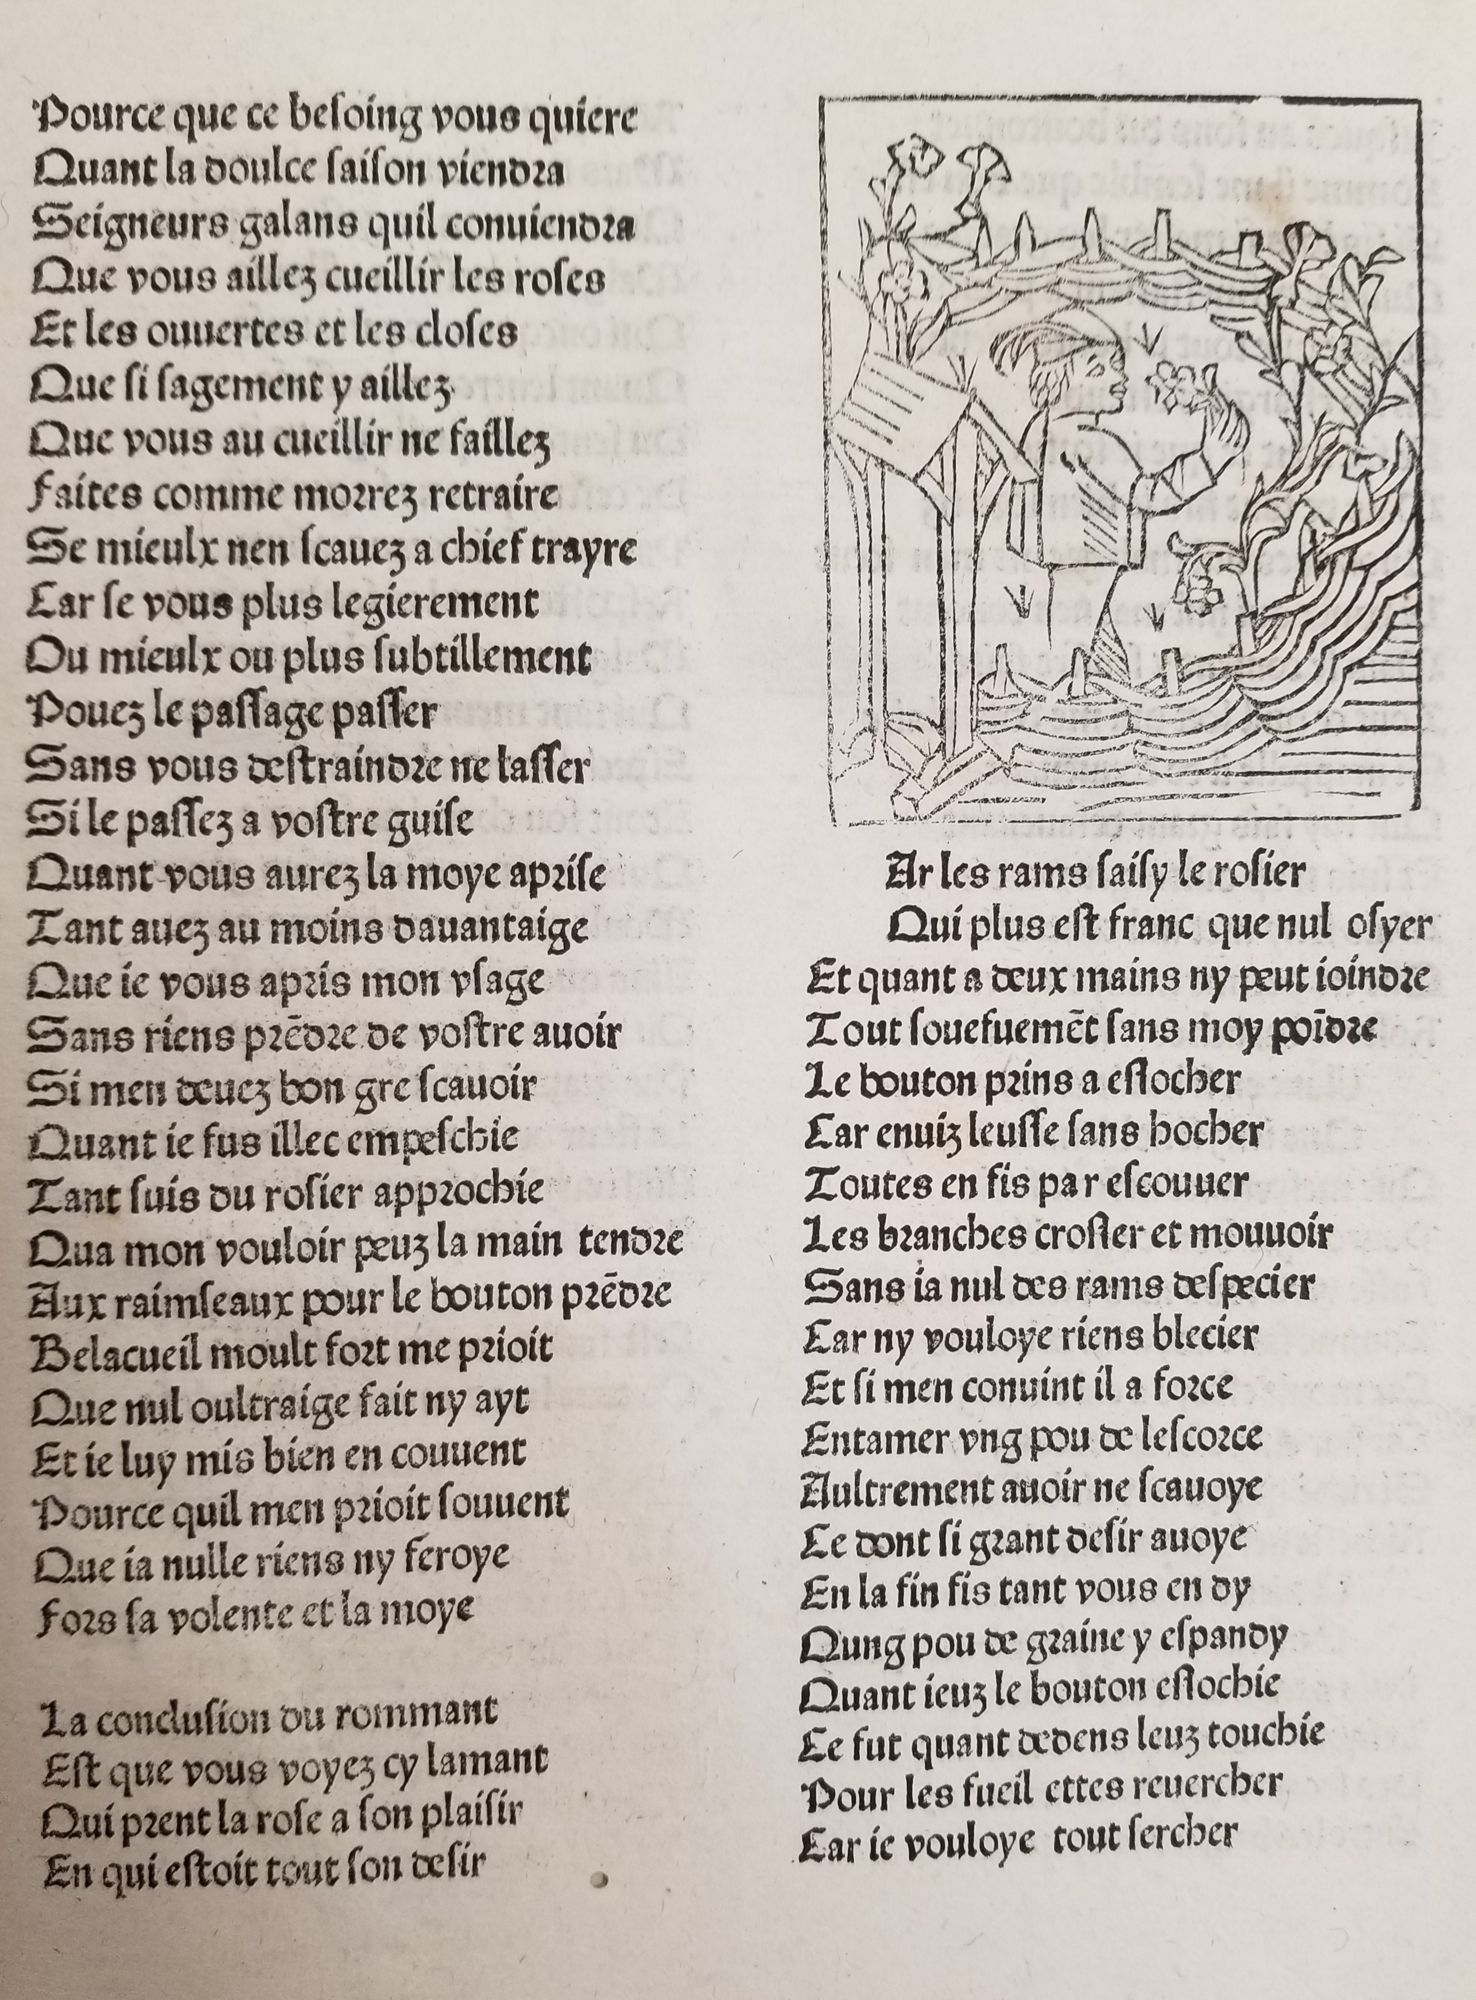 Pource que ce beſoing vous quiere
Quant la doulce ſaiſon viendra
Seigneurs galans quil conuiendra
Que vous aillez cueillir les roſes
Et les ouuertes et les cloſes
Que ſi ſagement y aillez
Que vous au cueillir ne faillez
Faites comme morrez retraire
Se mieulx nen ſcauez a chief trayre
Car ſe vous plus legierement
Ou mieulx ou plus ſubtillement
Pouez le paſſage paſſer
Sans vous deſtraindre ne laſſer
Si le paſſez a voſtre guiſe
Quant vous aurez la moye apriſe
Tant auez au moins dauantaige
Que ie vous apris mon vſage
Sans riens prēdre de voſtre auoir
Si men deuez bon gre ſcauoir
Quant ie fus illec empeſchie
Tant ſuis du roſier approchie
Qua mon vouloir peuz la main tendre
Aux raimſeaux pour le bouton prēdre
Belacueil moult fort me prioit
Que nul oultraige fait ny ayt
Et ie luy mis bien en couuent
Pource quil men prioit ſouuent
Que ia nulle riens ny feroye
Fors ſa volente et la moye
La concluſion du rommant
Eſt que vous voyez cy lamant
Qui prent la roſe a ſon plaiſir
En qui eſtoit tout ſon deſir
Ar les rams ſaiſy le roſier
Qui plus eſt franc que nul oſyer
Et quant a deux mains ny peut ioindre
Tout ſouefuemēt ſans moy poīdre
Le bouton prins a eſlocher
Car enuiz leuſſe ſans hocher
Toutes en fis par eſcouuer
Les branches croſler et mouuoir
Sans ia nul des rams deſpecier
Car ny vouloye riens blecier
Et ſi men conuint il a force
Entamer vng pou de leſcorce
Aultrement auoir ne ſcauoye
Ce dont ſi grant deſir auoye
En la fin fis tant vous en dy
Qung pou de graine y eſpandy
Quant ieuz le bouton eſlochie
Ce fut quant dedens leuz touchie
Pour les fueil ettes reuercher
Car ie vouloye tout ſercher